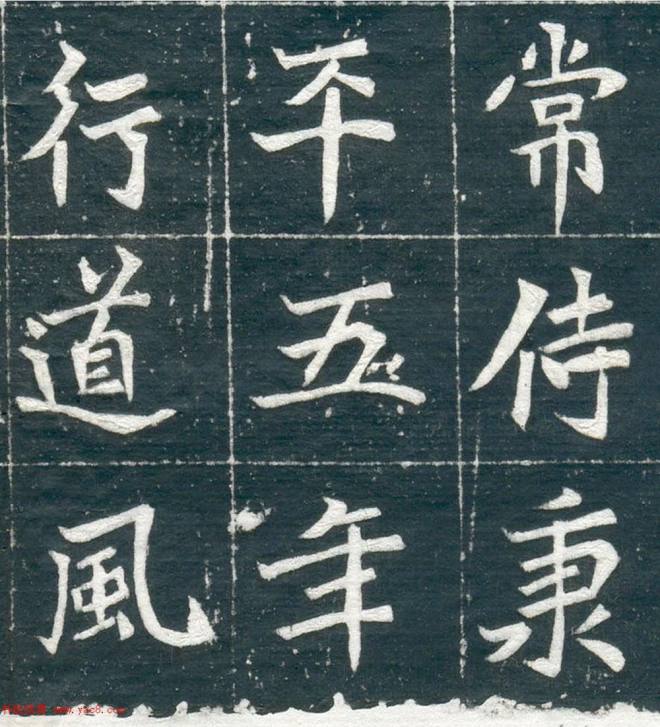 常侍秉
平五年
行道風
www.yac8.com